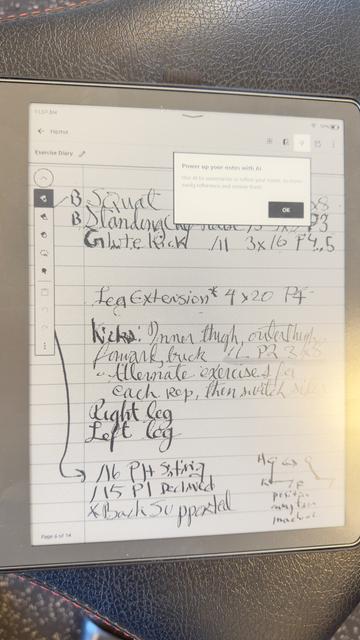 11:57 AM
Home
Exercise Diary
Power up your notes with AI
Use AI to summarize or refine your notes, to more easily reference and review them.
OK
B Squat 8
B Standing P3
Glute Kick /11 3x16 P4,5
Leg Extension* 4x20 P4
Kicks: Inner thigh, outer thigh
forward, back P2 3x8
Alternate exercises for
each rep, then switch
Right leg
Left leg
/16 P4 Sitting
/15 P1 Reclined
*Back Supported
Page 6 of 14